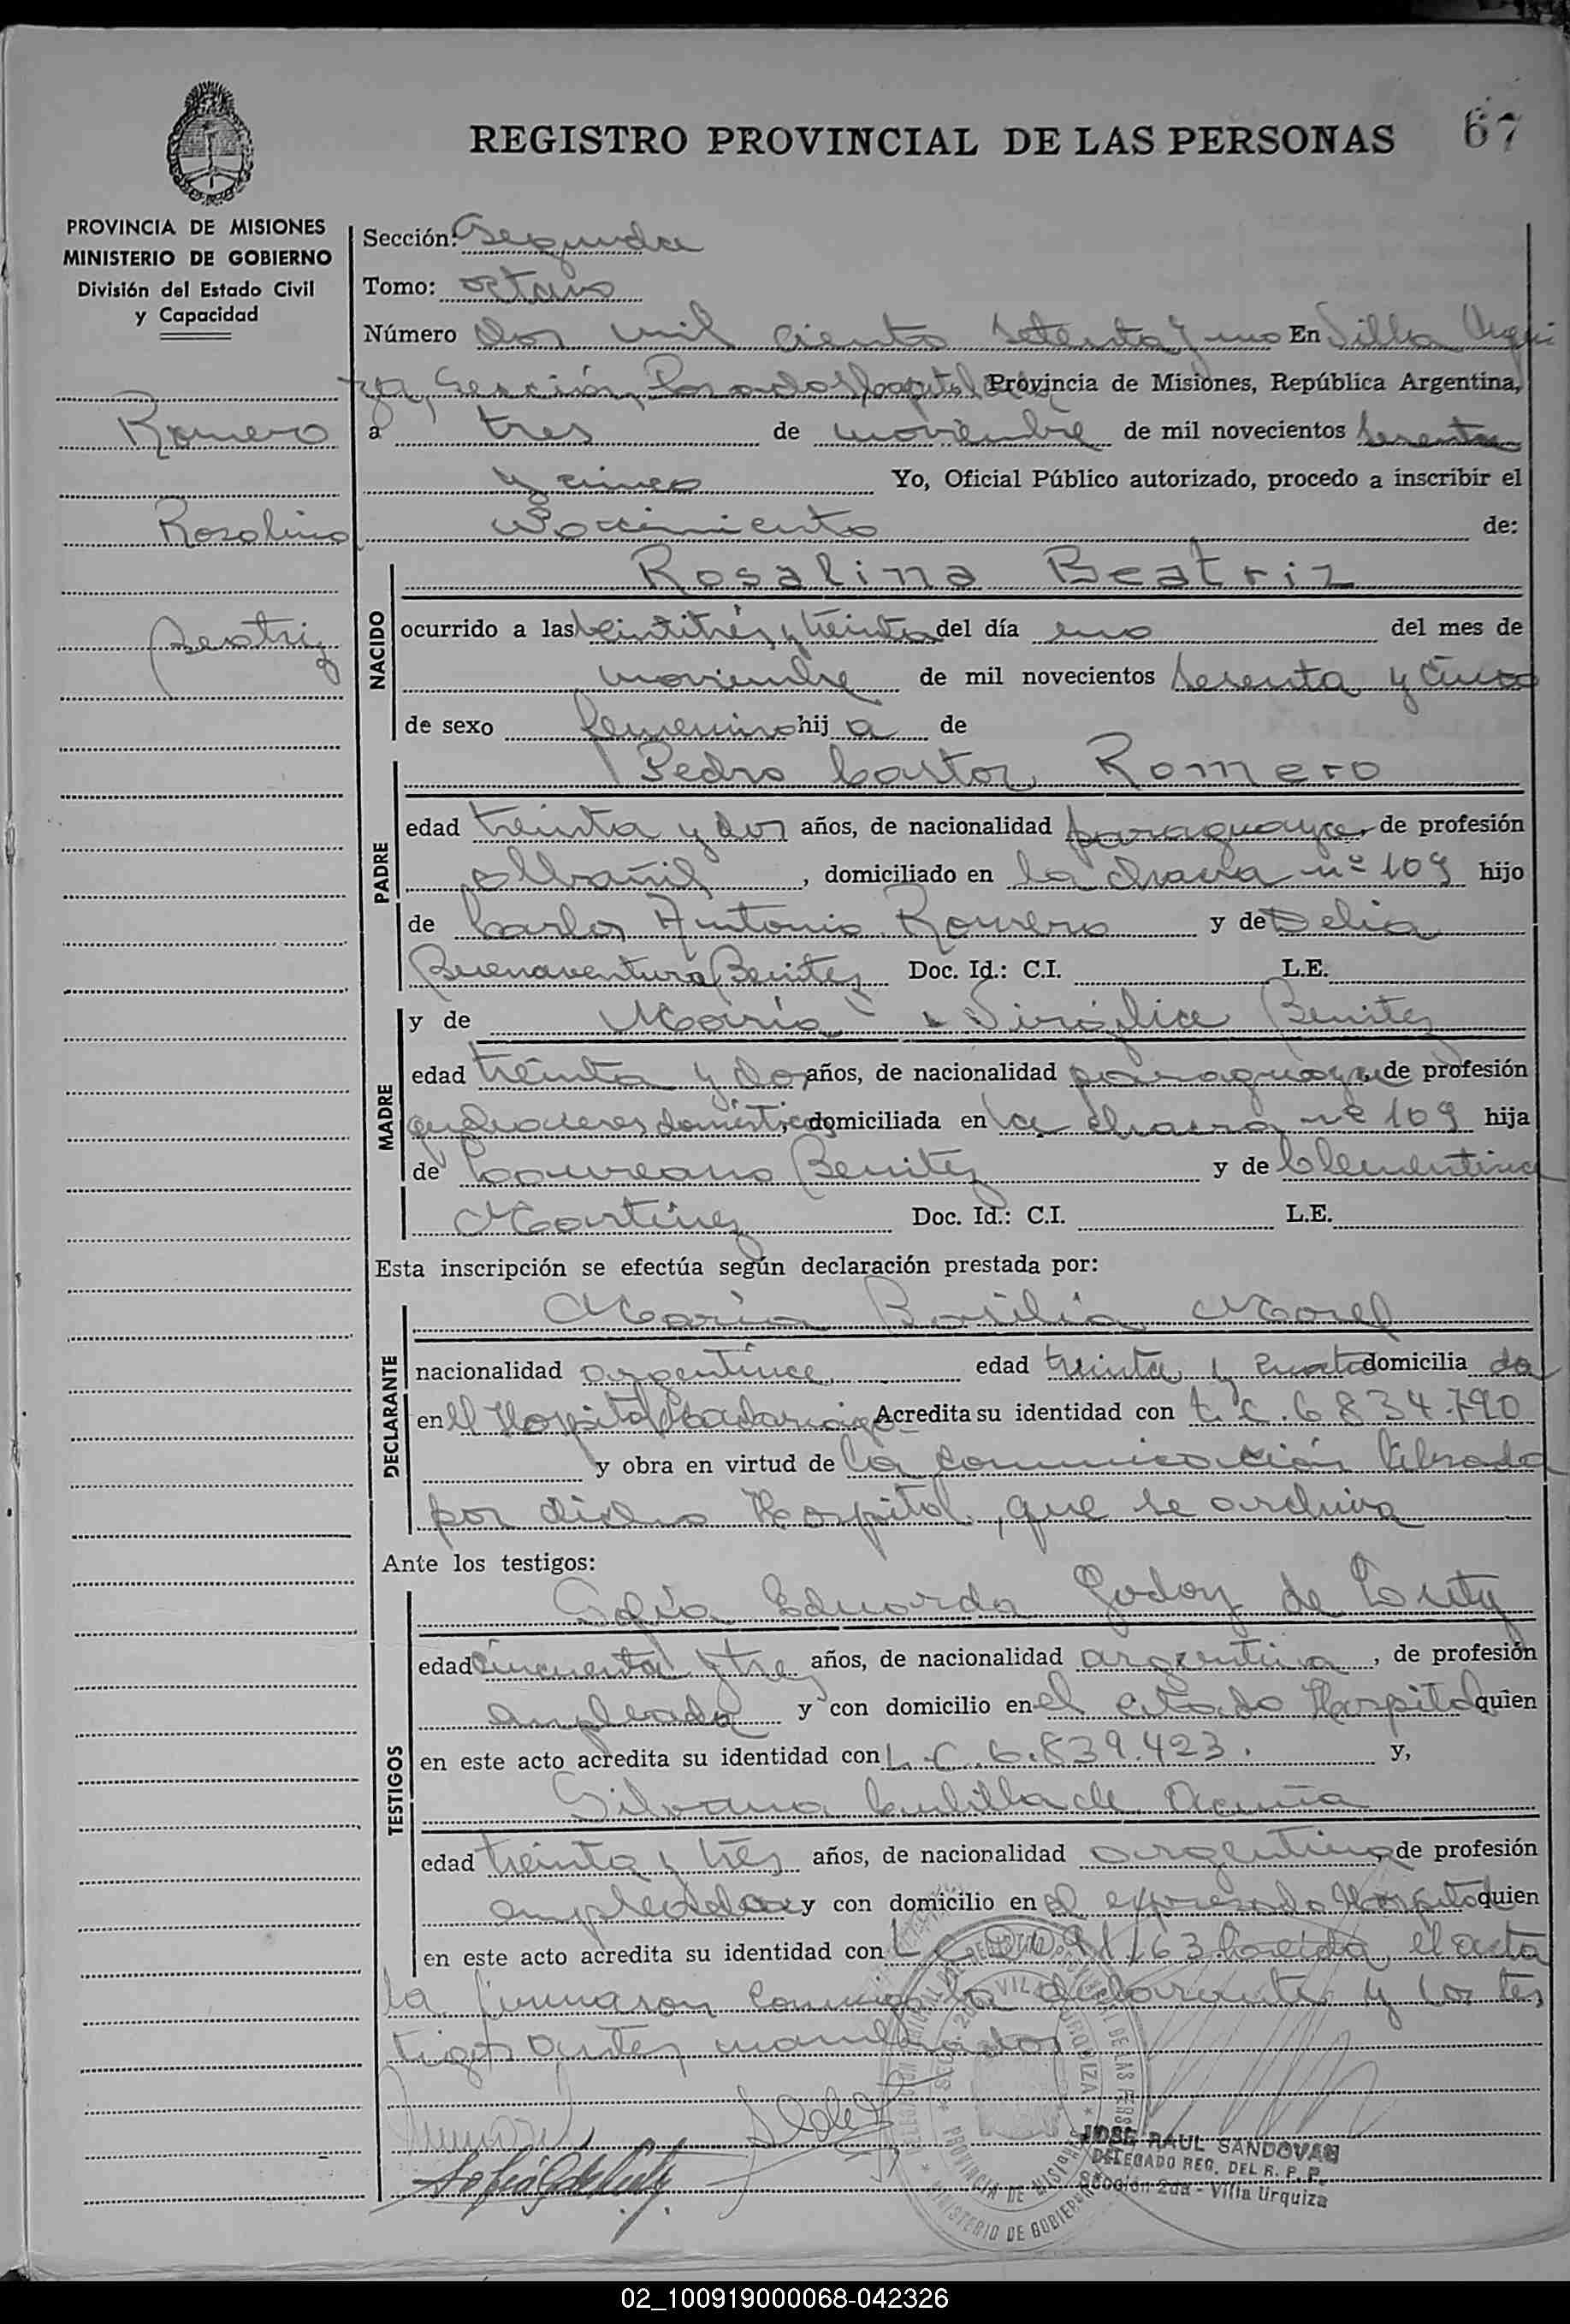 67
REGISTRO PROVINCIAL DE LAS PERSONAS
PROVINCIA DE MISIONES
MINISTERIO DE GOBIERNO
División del Estado Civil
y Capacidad
Romero
Rosalina
Beatriz
Sección: Segunda
Tomo: octavo
Número dos mil ciento setenta y uno En Villa Urqui
za, Sección, Posadas Capital Provincia de Misiones, República Argentina,
a tres de noviembre de mil novecientos sesenta
y cinco Yo, Oficial Público autorizado, procedo a inscribir el
Nacimiento de:
NACIDO
Rosalina Beatriz
ocurrido a las veintitrés y treinta del día uno del mes de
noviembre de mil novecientos sesenta y cinco
de sexo femenino hij a de
PADRE
Pedro Castor Romero
edad treinta y dos años, de nacionalidad paraguaya, de profesión
albañil, domiciliado en la chacra nº 109 hijo
de Carlos Antonio Romero y de Delia
Buenaventura Benitez Doc. Id.: C.I. L.E.
MADRE
y de María Virgilia Benitez
edad treinta y dos años, de nacionalidad paraguaya, de profesión
quehaceres domésticos, domiciliada en la chacra nº 109 hija
de Laureano Benitez y de Clementina
Martínez Doc. Id.: C.I. L.E.
Esta inscripción se efectúa según declaración prestada por:
DECLARANTE
María Basilia Morel
nacionalidad argentina, edad treinta y cuatro domicilia da
en el Hospital Madariaga Acredita su identidad con L.C. 6834.790
y obra en virtud de la comunicación librada
por dicho Hospital, que se archiva
Ante los testigos:
TESTIGOS
Sofía Eduarda Godoy de
edad cincuenta y tres años, de nacionalidad argentina, de profesión
empleada y con domicilio en el citado Hospital quien
en este acto acredita su identidad con L.C. 6.839.423. y,
Silvana de Acuña
edad treinta y tres años, de nacionalidad argentina de profesión
empleada y con domicilio en el expresado Hospital quien
en este acto acredita su identidad con L.C. leída el acta
la firmaron conmigo la declarante y los tes
tigos antes nombrados
JOSE RAUL SANDOVAL
DELEGADO REG. DEL R. P. P.
Sección 2da - Villa Urquiza
PROVINCIA DE MISIONES
MINISTERIO DE GOBIERNO
02_100919000068-042326